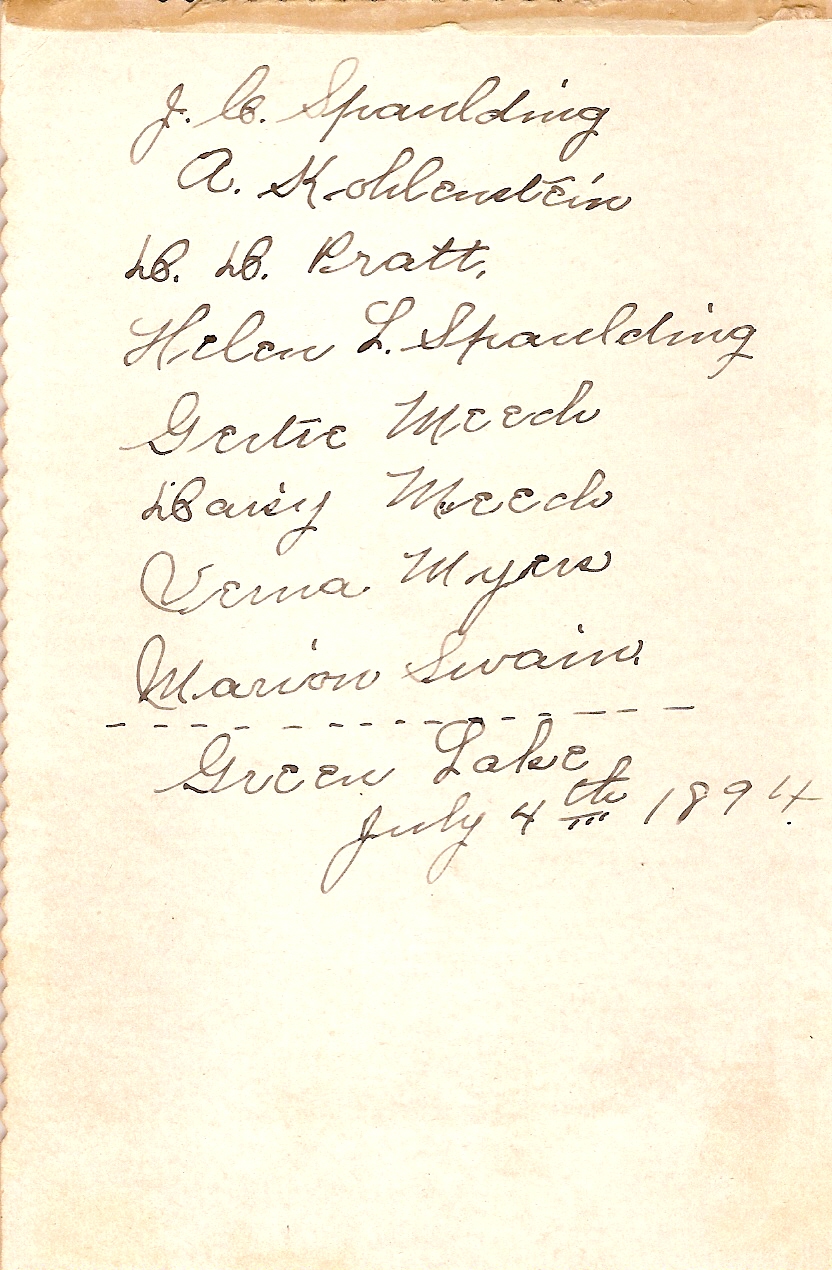 J. C. Spaulding
A. Kohlenstein
D. D. Pratt.
Helen L. Spaulding
Gertie Meech
Daisy Meech
Verna Myers
Marion Swain.
Green Lake
July 4th 1894.